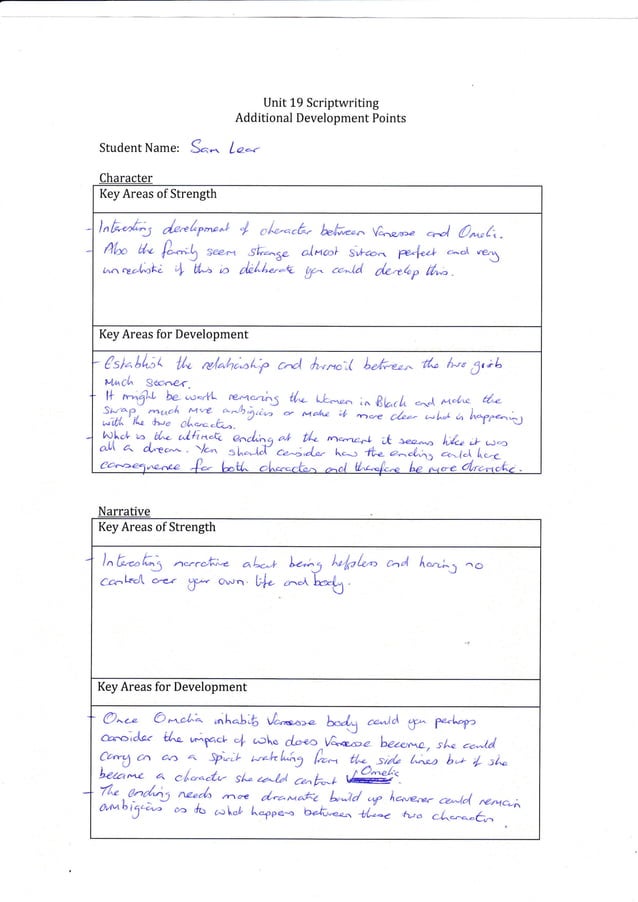 Unit 19 Scriptwriting
Additional Development Points
Student Name: Sam Lear
Character
Key Areas of Strength
- Interesting development of character between Vanesse and Omelia.
- Also the family seem strange almost sitcom perfect and very
unrealistic if this is deliberate you could develop this.
Key Areas for Development
- Establish the relationship and turmoil between the two girls
much sooner.
- It might be worth removing the Women in Black and make the
swap much more ambigious or make it more clear what is happening
with the two characters.
- What is the ultimate ending at the moment it seems like it was
all a dream. You should consider how the ending could have
consequence for both character and therefore be more dramatic.
Narrative
Key Areas of Strength
- Interesting narrative about being helpless and having no
control over your own life and body.
Key Areas for Development
- Once Omelia inhabits Vanesse body could you perhaps
consider the impact of who does Vanesse become, she could
carry on as a spirit watching from the side lines but if she
became a character she could confront Omelia
- The ending needs more dramatic build up however could remain
ambigious as to what happens between these two character.